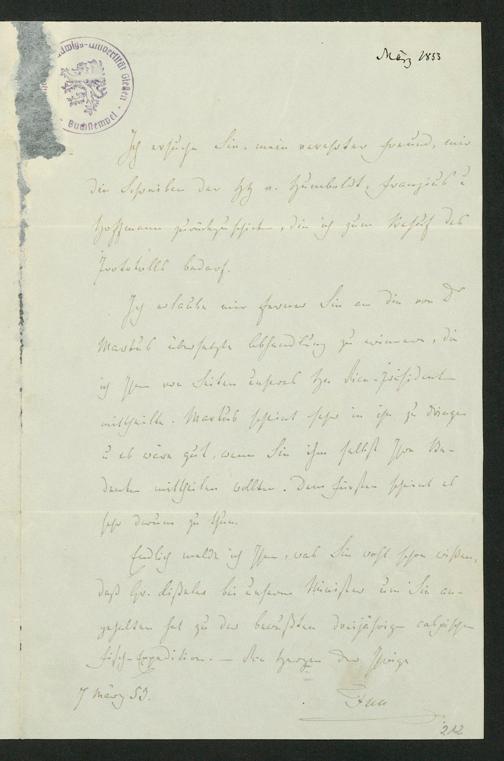 März 1853
Ludwigs-Universität Gießen
Buchstempel
Ich ersuche Sie, mein verehrter Freund, mir
die Schreiben der HH v. Humboldt, u
Hoffmann zurückzuschicken, die ich zum Behuf des
Protokolls bedarf.
Ich erlaube mir ferner Sie an die von Dr
übersetzte Abhandlung zu erinnern, die
ich Ihnen von Seiten unseres Hrn Vice-Präsidenten
mittheilte. scheint sehr in ihn zu dringen
u es wäre gut, wenn Sie ihm selbst Ihre Be-
denken mittheilen wollten. Dem Fürsten scheint es
sehr darum zu thun.
Endlich melde ich Ihnen, was Sie wohl schon wissen,
daß Gr. bei unserem Minister um Sie an-
gehalten hat zu der bewußten dreijährigen caspischen
Fisch-Expedition. — Von Herzen der Ihrige
7 März 53.
212